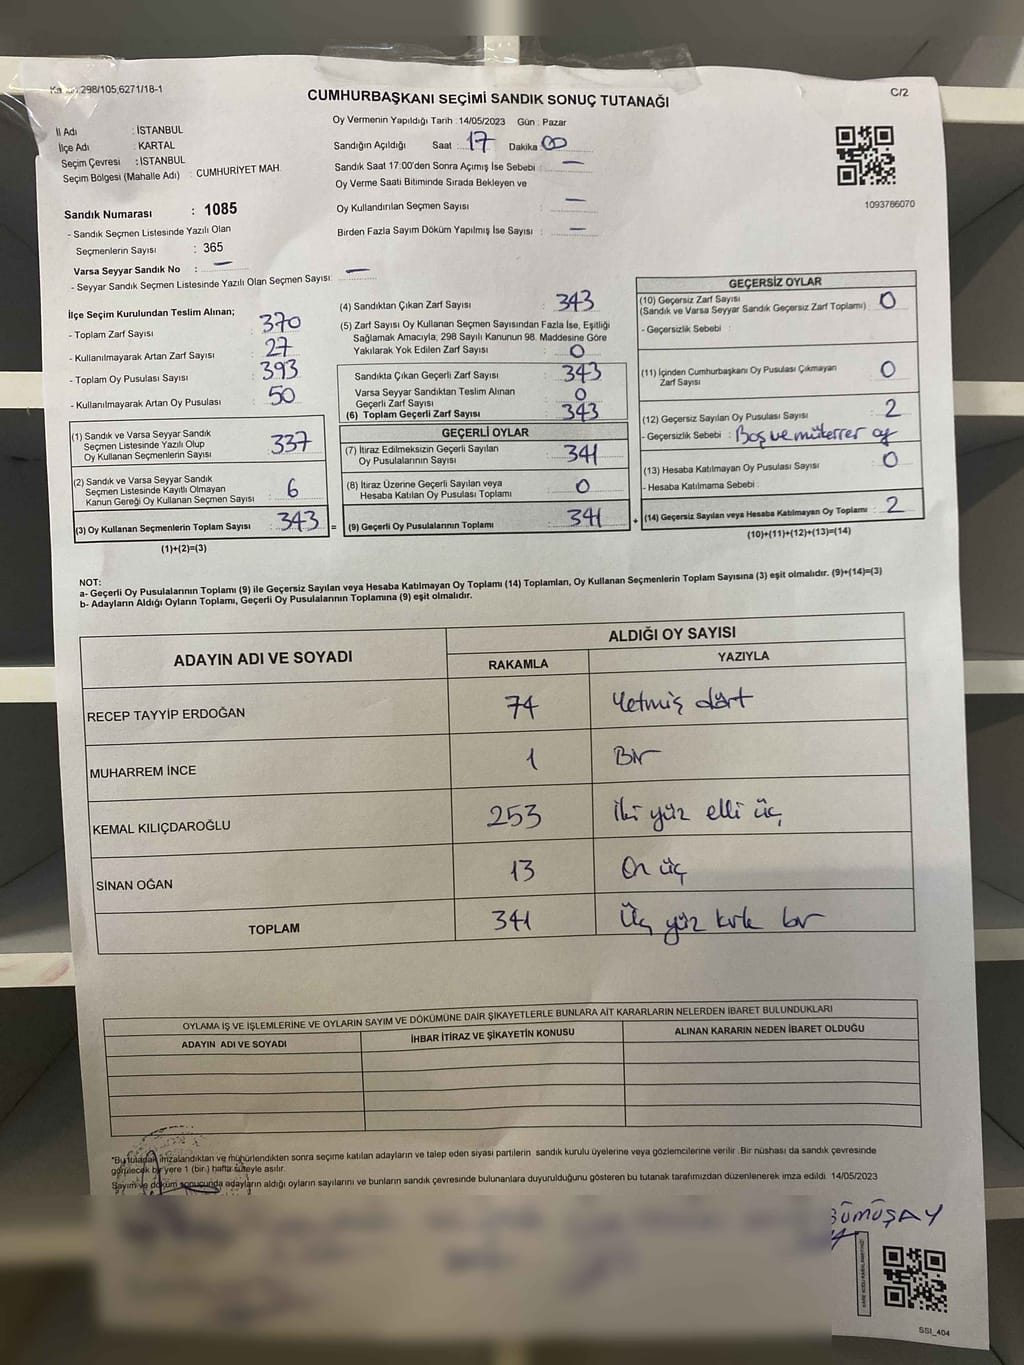 298/105,6271/18-1
C/2
CUMHURBAŞKANI SEÇİMİ SANDIK SONUÇ TUTANAĞI
İl Adı : İSTANBUL
İlçe Adı : KARTAL
Seçim Çevresi : İSTANBUL
Seçim Bölgesi (Mahalle Adı) : CUMHURİYET MAH.
Oy Vermenin Yapıldığı Tarih : 14/05/2023 Gün : Pazar
Sandığın Açıldığı Saat : 17 Dakika : 00
Sandık Saat 17:00'den Sonra Açımış İse Sebebi : —
Oy Verme Saati Bitiminde Sırada Bekleyen ve
Oy Kullandırılan Seçmen Sayısı : —
Birden Fazla Sayım Döküm Yapılmış İse Sayısı : —
1093786070
Sandık Numarası : 1085
- Sandık Seçmen Listesinde Yazılı Olan
Seçmenlerin Sayısı : 365
Varsa Seyyar Sandık No : —
- Seyyar Sandık Seçmen Listesinde Yazılı Olan Seçmen Sayısı: —
İlçe Seçim Kurulundan Teslim Alınan;
- Toplam Zarf Sayısı : 370
- Kullanılmayarak Artan Zarf Sayısı : 27
- Toplam Oy Pusulası Sayısı : 393
- Kullanılmayarak Artan Oy Pusulası : 50
(1) Sandık ve Varsa Seyyar Sandık
Seçmen Listesinde Yazılı Olup
Oy Kullanan Seçmenlerin Sayısı : 337
(2) Sandık ve Varsa Seyyar Sandık
Seçmen Listesinde Kayıtlı Olmayan
Kanun Gereği Oy Kullanan Seçmen Sayısı : 6
(3) Oy Kullanan Seçmenlerin Toplam Sayısı : 343 =
(1)+(2)=(3)
(4) Sandıktan Çıkan Zarf Sayısı : 343
(5) Zarf Sayısı Oy Kullanan Seçmen Sayısından Fazla İse, Eşitliği
Sağlamak Amacıyla, 298 Sayılı Kanunun 98. Maddesine Göre
Yakılarak Yok Edilen Zarf Sayısı : 0
Sandıkta Çıkan Geçerli Zarf Sayısı : 343
Varsa Seyyar Sandıktan Teslim Alınan
Geçerli Zarf Sayısı : 0
(6) Toplam Geçerli Zarf Sayısı : 343
GEÇERLİ OYLAR
(7) İtiraz Edilmeksizin Geçerli Sayılan
Oy Pusulalarının Sayısı : 341
(8) İtiraz Üzerine Geçerli Sayılan veya
Hesaba Katılan Oy Pusulası Toplamı : 0
(9) Geçerli Oy Pusulalarının Toplamı : 341 +
GEÇERSİZ OYLAR
(10) Geçersiz Zarf Sayısı
(Sandık ve Varsa Seyyar Sandık Geçersiz Zarf Toplamı) : 0
- Geçersizlik Sebebi :
(11) İçinden Cumhurbaşkanı Oy Pusulası Çıkmayan
Zarf Sayısı : 0
(12) Geçersiz Sayılan Oy Pusulası Sayısı : 2
- Geçersizlik Sebebi : Boş ve mükerrer oy
(13) Hesaba Katılmayan Oy Pusulası Sayısı : 0
- Hesaba Katılmama Sebebi :
(14) Geçersiz Sayılan veya Hesaba Katılmayan Oy Toplamı : 2
(10)+(11)+(12)+(13)=(14)
NOT:
a- Geçerli Oy Pusulalarının Toplamı (9) ile Geçersiz Sayılan veya Hesaba Katılmayan Oy Toplamı (14) Toplamları, Oy Kullanan Seçmenlerin Toplam Sayısına (3) eşit olmalıdır. (9)+(14)=(3)
b- Adayların Aldığı Oyların Toplamı, Geçerli Oy Pusulalarının Toplamına (9) eşit olmalıdır.
ADAYIN ADI VE SOYADI
ALDIĞI OY SAYISI
RAKAMLA YAZIYLA
RECEP TAYYİP ERDOĞAN 74 Yetmiş dört
MUHARREM İNCE 1 Bir
KEMAL KILIÇDAROĞLU 253 İki yüz elli üç
SİNAN OĞAN 13 On üç
TOPLAM 341 Üç yüz kırk bir
OYLAMA İŞ VE İŞLEMLERİNE VE OYLARIN SAYIM VE DÖKÜMÜNE DAİR ŞİKAYETLERLE BUNLARA AİT KARARLARIN NELERDEN İBARET BULUNDUKLARI
ADAYIN ADI VE SOYADI İHBAR İTİRAZ VE ŞİKAYETİN KONUSU ALINAN KARARIN NEDEN İBARET OLDUĞU
"Bu tutanak imzalandıktan ve mühürlendikten sonra seçime katılan adayların ve talep eden siyasi partilerin sandık kurulu üyelerine veya gözlemcilerine verilir. Bir nüshası da sandık çevresinde
görülecek bir yere 1 (bir) hafta süreyle asılır.
Sayım ve döküm sonucunda adayların aldığı oyların sayılarını ve bunların sandık çevresinde bulunanlara duyurulduğunu gösteren bu tutanak tarafımızdan düzenlenerek imza edildi. 14/05/2023
GÜMÜŞAY
SSI_404